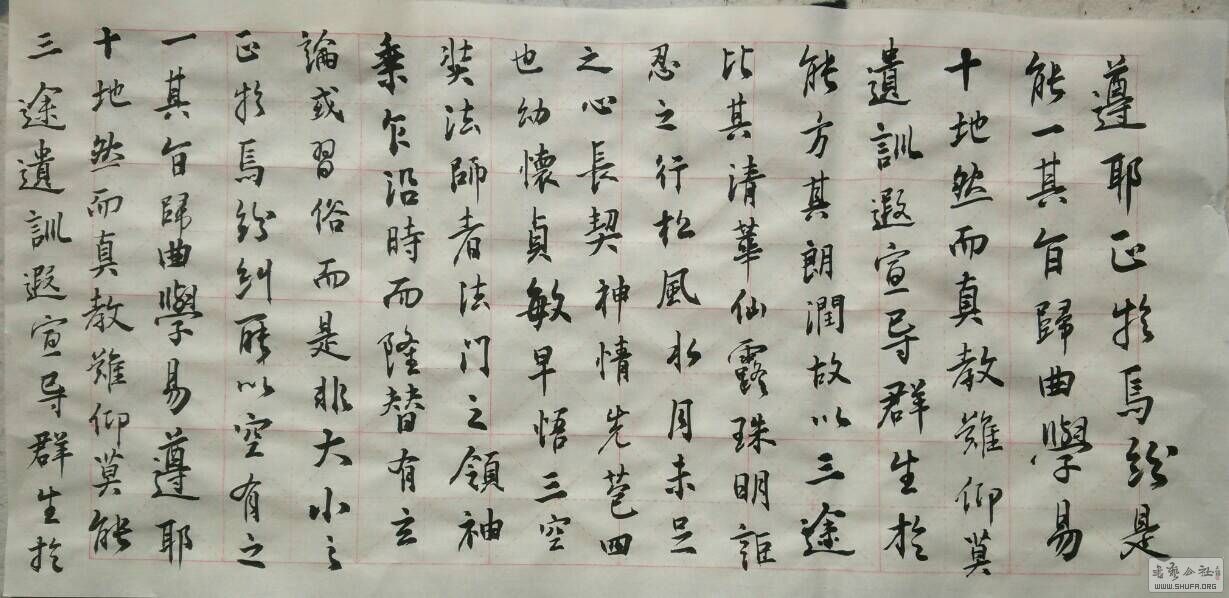 遵耶正於焉紛是
能一其旨歸曲學易
十地然而真教難仰莫
遺訓遐宣导群生於
能方其朗潤故以三途
比其清華仙露珠明詎
忍之行松風水月未足
之心長契神情先苞四
也幼懷貞敏早悟三空
奘法師者法門之領袖
乘乍沿時而隆替有玄
論或習俗而是非大小之
正於焉紛糾所以空有之
一其旨歸曲學易遵耶
十地然而真教難仰莫能
三途遺訓遐宣导群生於
书艺公社
WWW.SHUFA.ORG